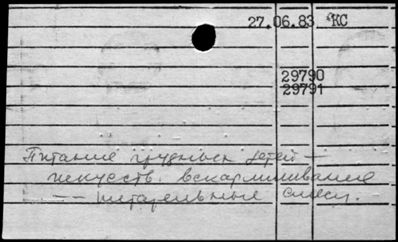 27.06.83 КС
29790
29791
Питание грудных детей —
искусств. вскармливание
— — питательные смеси.